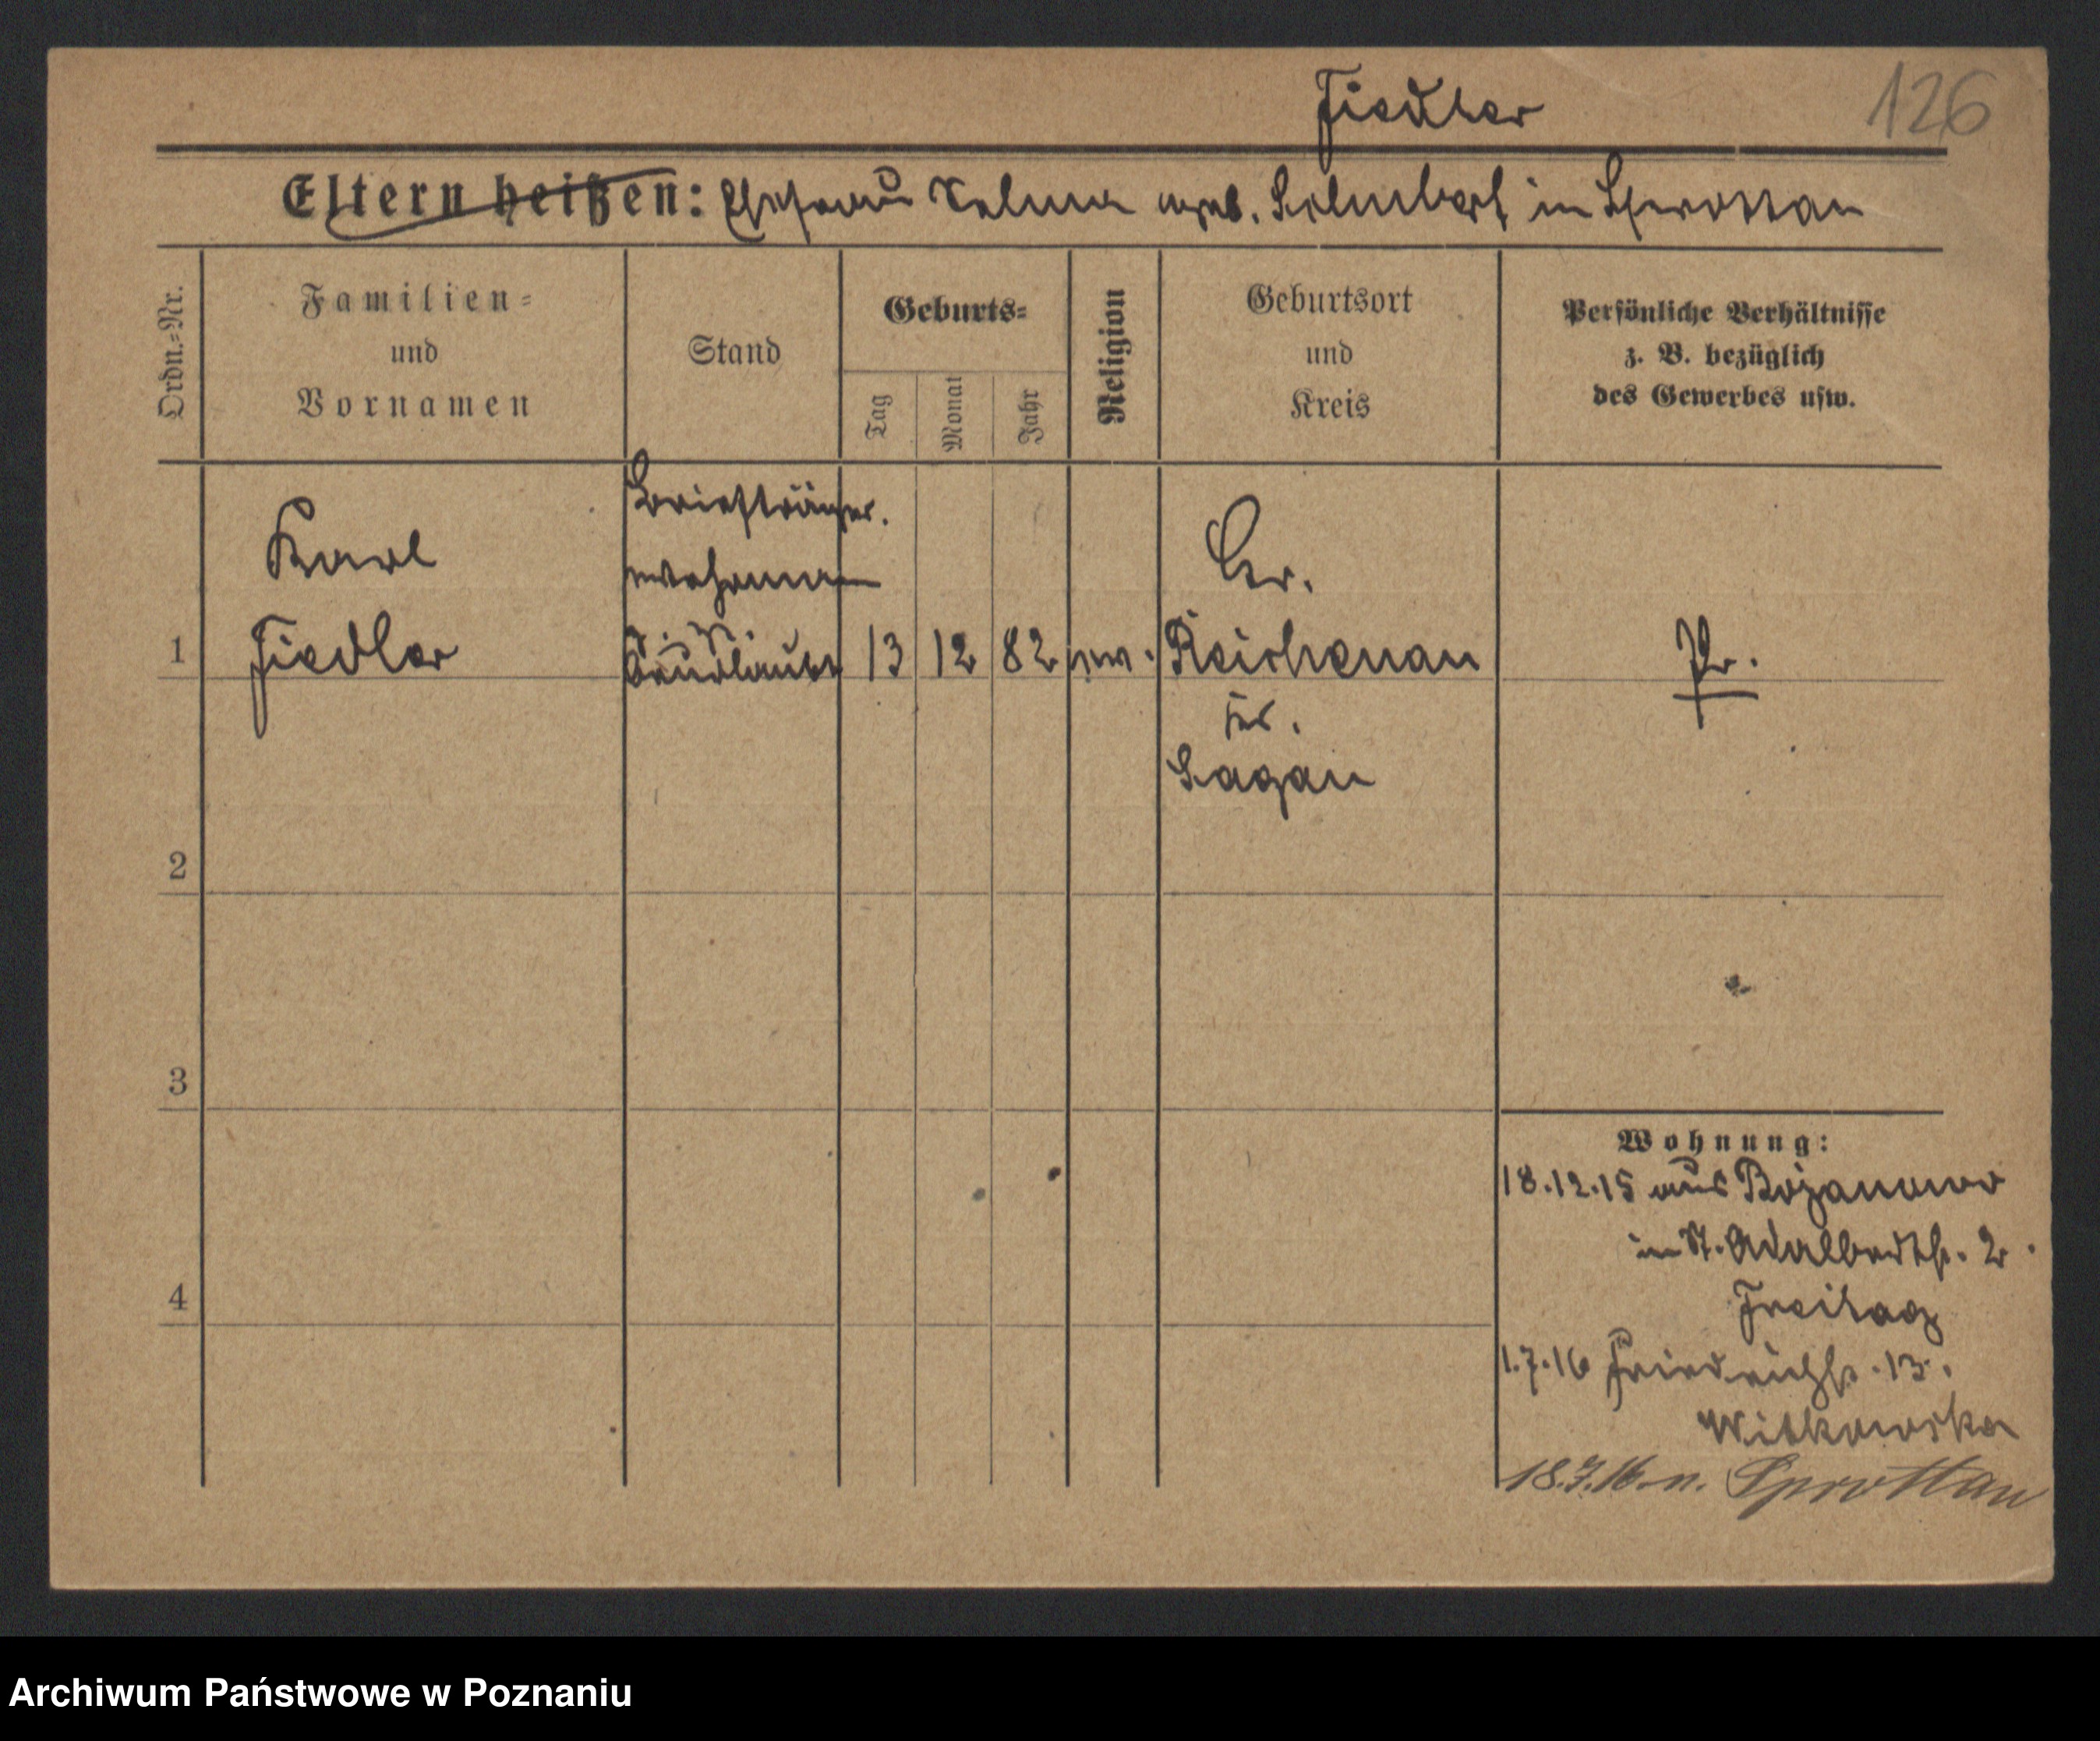 Fiedler 126
Eltern heißen: Ehefrau Selma geb. in Sprottau
Ordn.-Nr.
Familien-
und
Vornamen
Stand
Geburts-
Tag
Monat
Jahr
Religion
Geburtsort
und
Kreis
Persönliche Verhältnisse
z. B. bezüglich
des Gewerbes usw.
1
Karl
Fiedler
Briefträger.
13 12 82 ev.
Gr.
Reichenau
Kr.
Sagan
Pr.
2
3
4
Wohnung:
18.12.15 aus Bojanowo
in St. Adalbertstr. 2.
Freitag
1.7.16 Friedrichstr. 13.
Witkowska
18.7.16 n. Sprottau
Archiwum Państwowe w Poznaniu